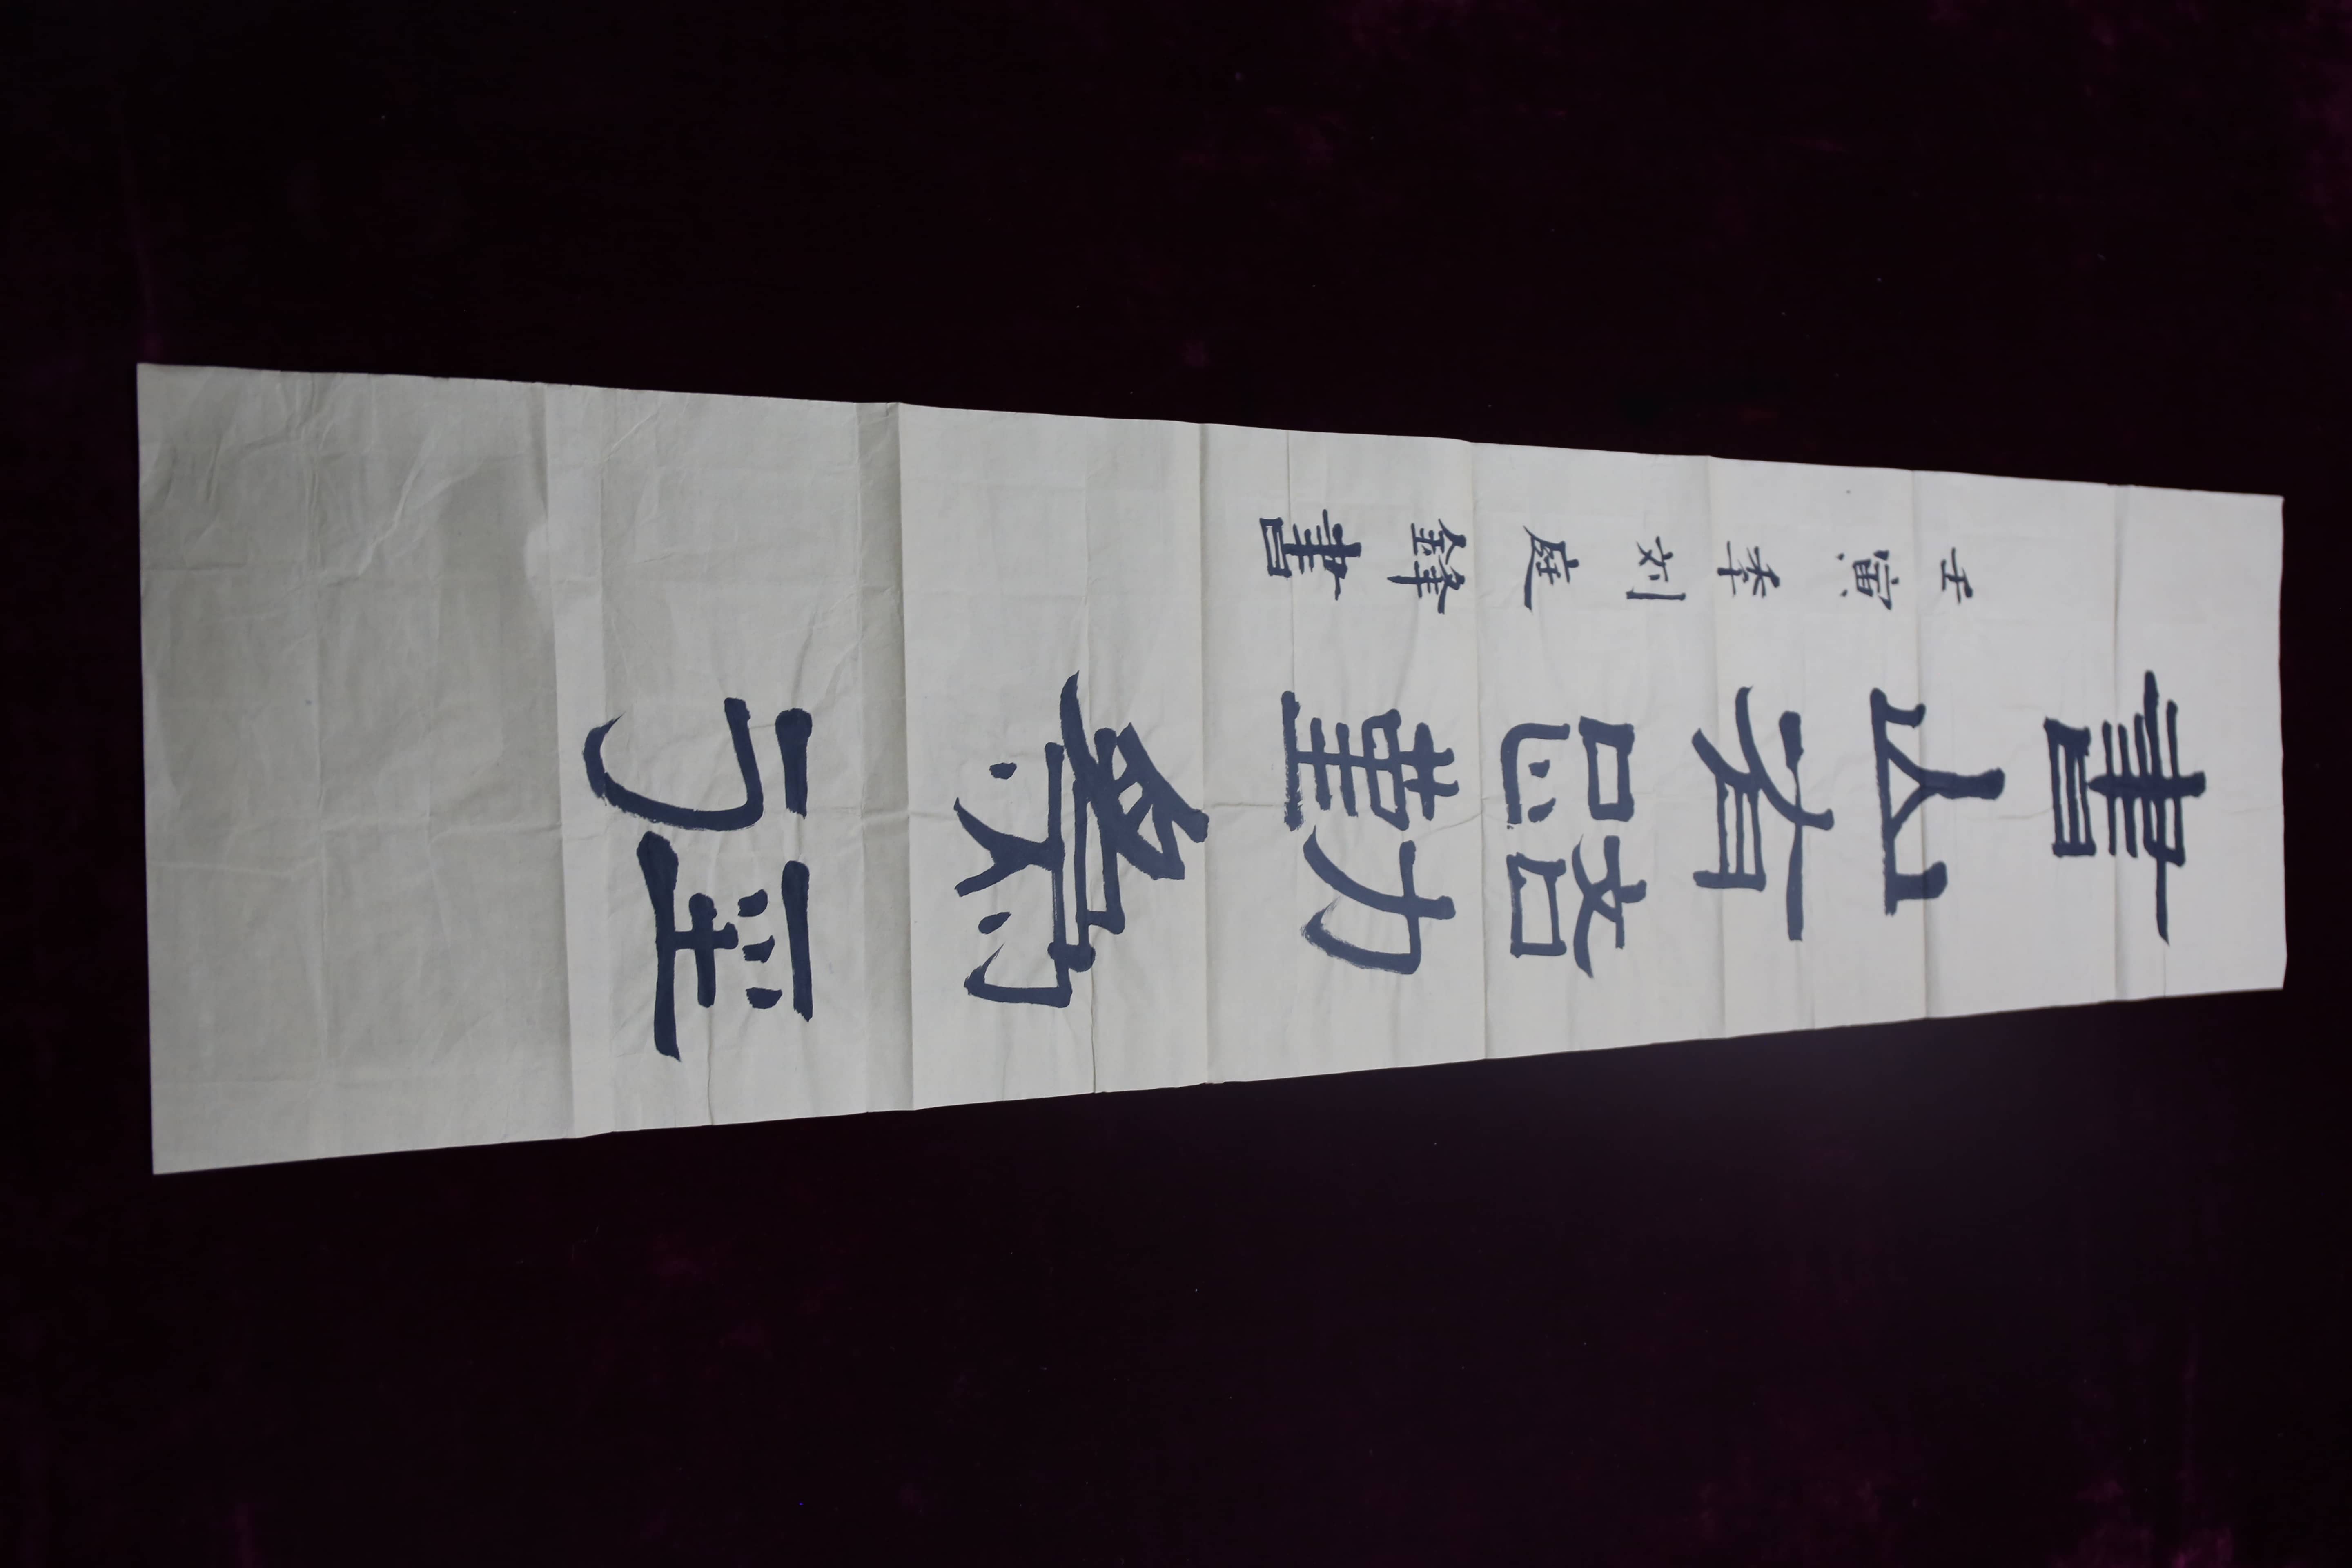 書山有路勤為徑
壬寅秊刘庭鋒書